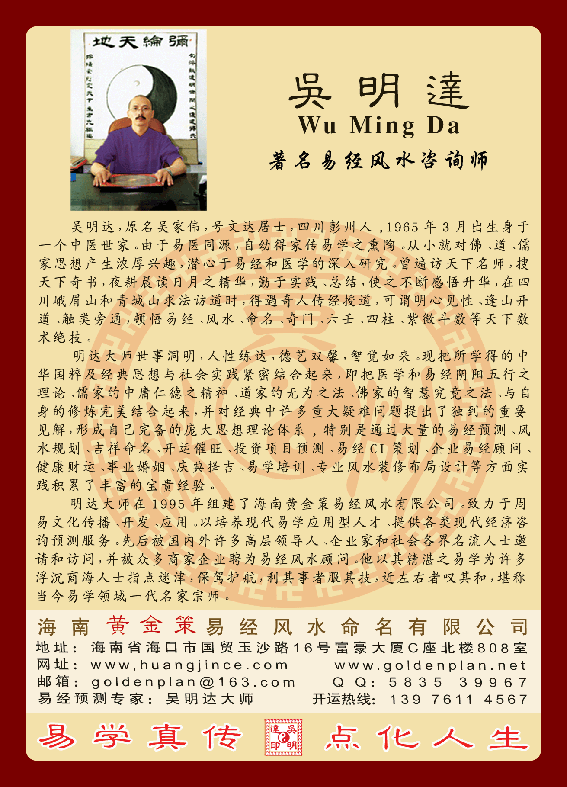 地天綸彌
吳明達
Wu Ming Da
著名易经风水咨询师
吴明达,原名吴家伟,号文达居士,四川彭州人,1965年3月出生身于
一个中医世家。由于易医同源,自幼得家传易学之熏陶。从小就对佛、道、儒
家思想产生浓厚兴趣,潜心于易经和医学的深入研究。曾遍访天下名师,搜
天下奇书,夜耕晨读日月之精华,勤于实践、总结,使之不断感悟升华,在四
川峨眉山和青城山求法访道时,得遇奇人传经授道,可谓明心见性、逢山开
道、触类旁通,顿悟易经、风水、命名、奇门、六壬、四柱、紫微斗数等天下数
术绝技。
明达大师世事洞明,人性练达,德艺双馨,智觉如来。现把所学得的中
华国粹及经典思想与社会实践紧密结合起来,即把医学和易经阴阳五行之
理论、儒家的中庸仁德之精神、道家的无为之法、佛家的智慧究竟之法、与自
身的修炼完美结合起来,并对经典中许多重大疑难问题提出了独到的重要
见解,形成自己完备的庞大思想理论体系,特别是通过大量的易经预测、风
水规划、吉祥命名、开运催旺、投资项目预测、易经CI策划、企业易经顾问、
健康财运、事业婚姻、庆典择吉、易学培训、专业风水装修布局设计等方面实
践积累了丰富的宝贵经验。
明达大师在1995年组建了海南黄金策易经风水有限公司,致力于周
易文化传播、开发、应用。以培养现代易学应用型人才、提供各类现代经济咨
询预测服务。先后被国内外许多高层领导人、企业家和社会各界名流人士邀
请和访问,并被众多商家企业聘为易经风水顾问。他以其精湛之易学为许多
浮沉商海人士指点迷津,保驾护航,利其事者服其技,近左右者叹其和,堪称
当今易学领域一代名家宗师。
海南黄金策易经风水命名有限公司
地址:海南省海口市国贸玉沙路16号富豪大厦C座北楼808室
网址:www.huangjince.com www.goldenplan.net
邮箱:goldenplan@163.com QQ:5835 39967
易经预测专家:吴明达大师 开运热线:139 7611 4567
易学真传 吳明達印 点化人生